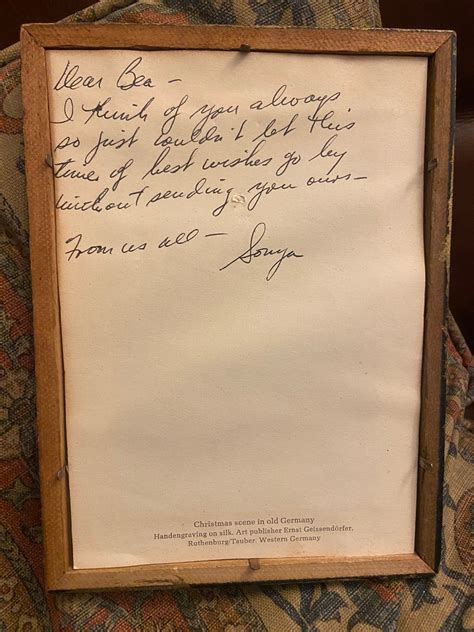 Dear Bea –
I think of you always
so just couldn't let this
time of best wishes go by
without sending you ours –
From us all – Sonya
Christmas scene in old Germany
Handengraving on silk. Art publisher Ernst Geissendörfer,
Rothenburg/Tauber. Western Germany